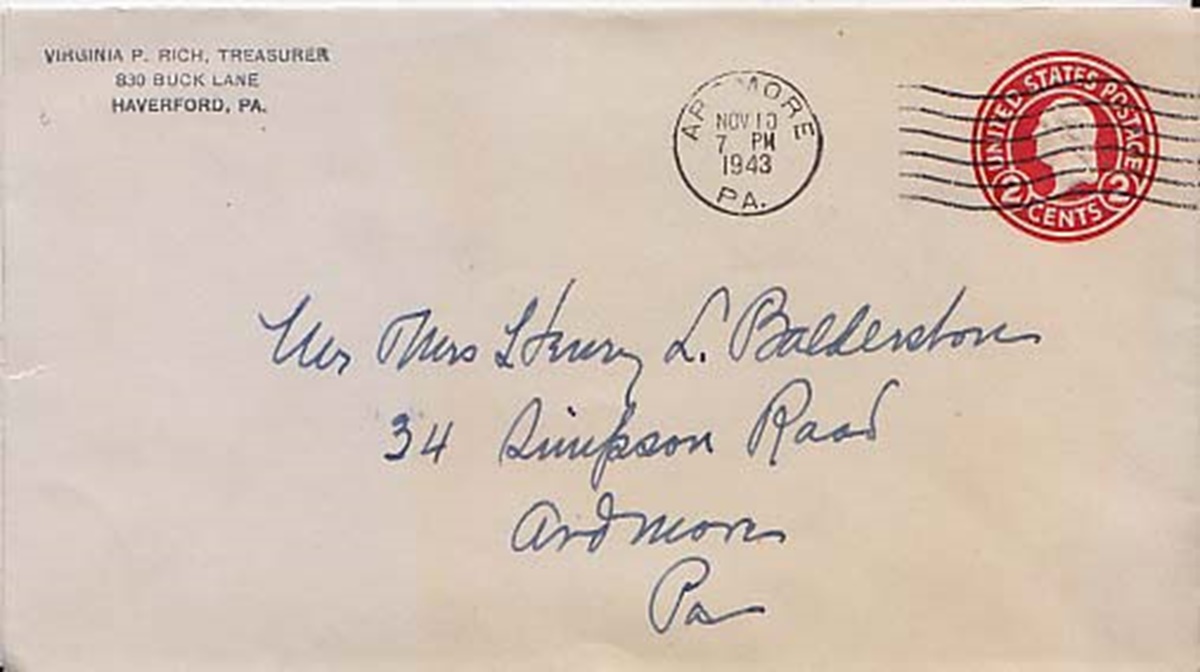 VIRGINIA P. RICH, TREASURER
830 BUCK LANE
HAVERFORD, PA.
ARDMORE
NOV 10
7 PM
1943
PA.
UNITED STATES POSTAGE
2 CENTS 2
Mr Mrs Henry L. Balderston
34 Simpson Road
Ardmore
Pa